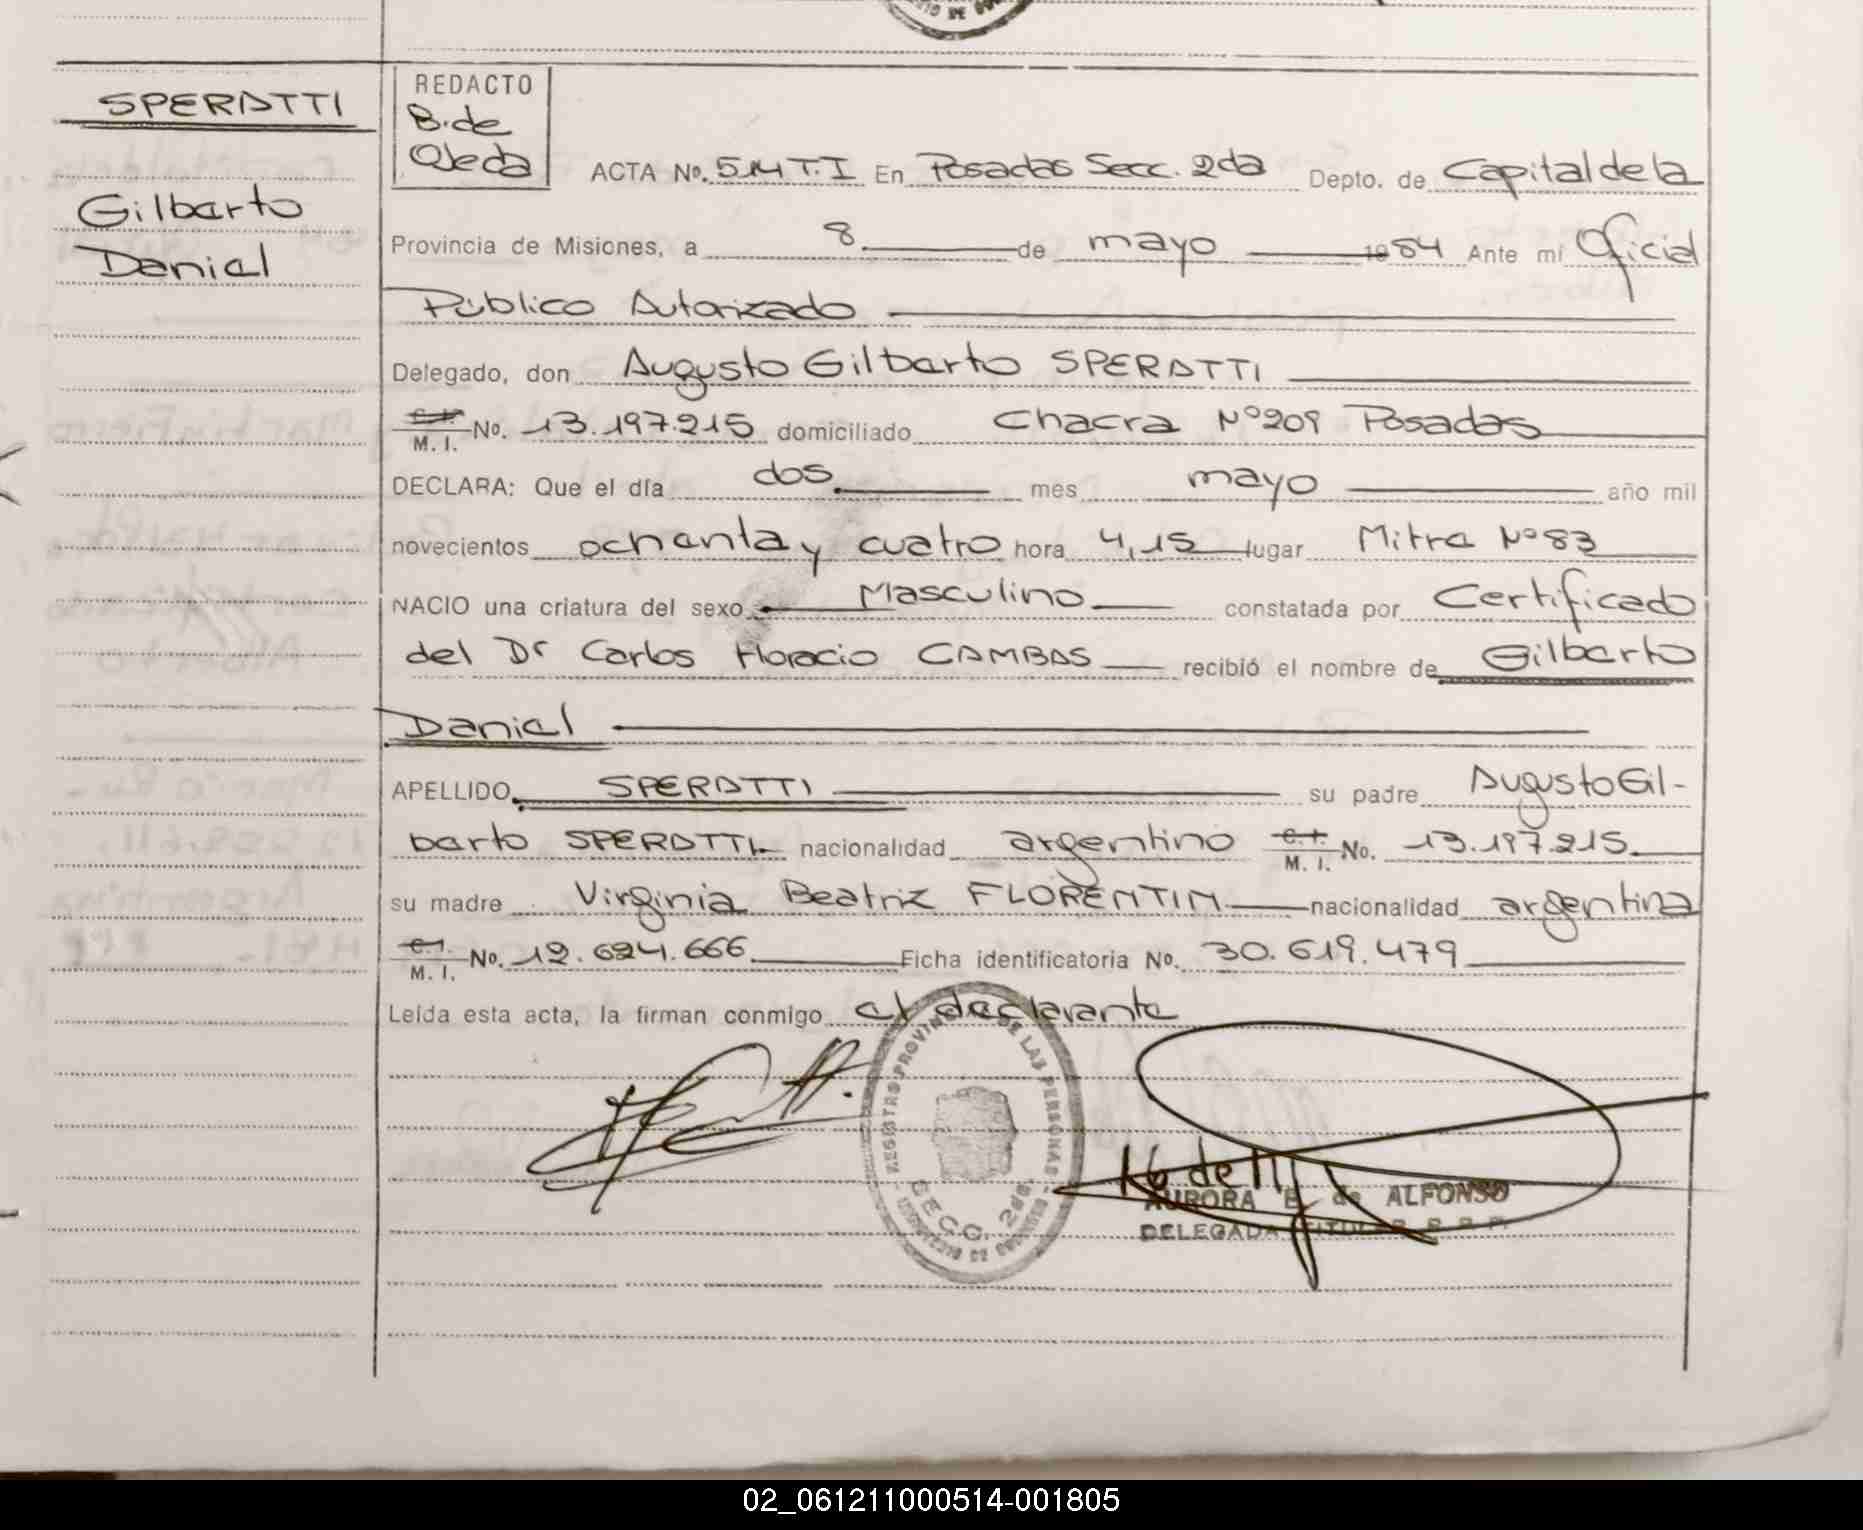 SPERATTI
Gilberto
Daniel
REDACTO
B. de
Ojeda
ACTA No. 514 T. I En Posadas Secc. 2da Depto. de Capital de la
Provincia de Misiones, a 8 de mayo 1984 Ante mí Oficial
Público Autorizado
Delegado, don Augusto Gilberto SPERATTI
C.I. M. I. No. 13.197.215 domiciliado Chacra Nº 209 Posadas
DECLARA: Que el día dos mes mayo año mil
novecientos ochenta y cuatro hora 4,15 lugar Mitre Nº 83
NACIO una criatura del sexo Masculino constatada por Certificado
del Dr Carlos Horacio CAMBAS recibió el nombre de Gilberto
Daniel
APELLIDO SPERATTI su padre Augusto Gil-
berto SPERATTI nacionalidad argentino C.I. M. I. No. 13.197.215.
su madre Virginia Beatriz FLORENTIN nacionalidad argentina
C.I. M. I. No. 12.624.666 Ficha identificatoria No. 30.619.479
Leída esta acta, la firman conmigo el declarante
REGISTRO PROVINCIAL DE LAS PERSONAS
SECC. 2da.
AURORA B. de ALFONSO
DELEGADA TITULAR
02_061211000514-001805